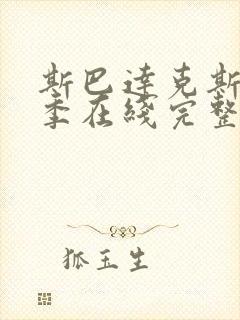 斯巴达克斯
季在线完整
狐玉生